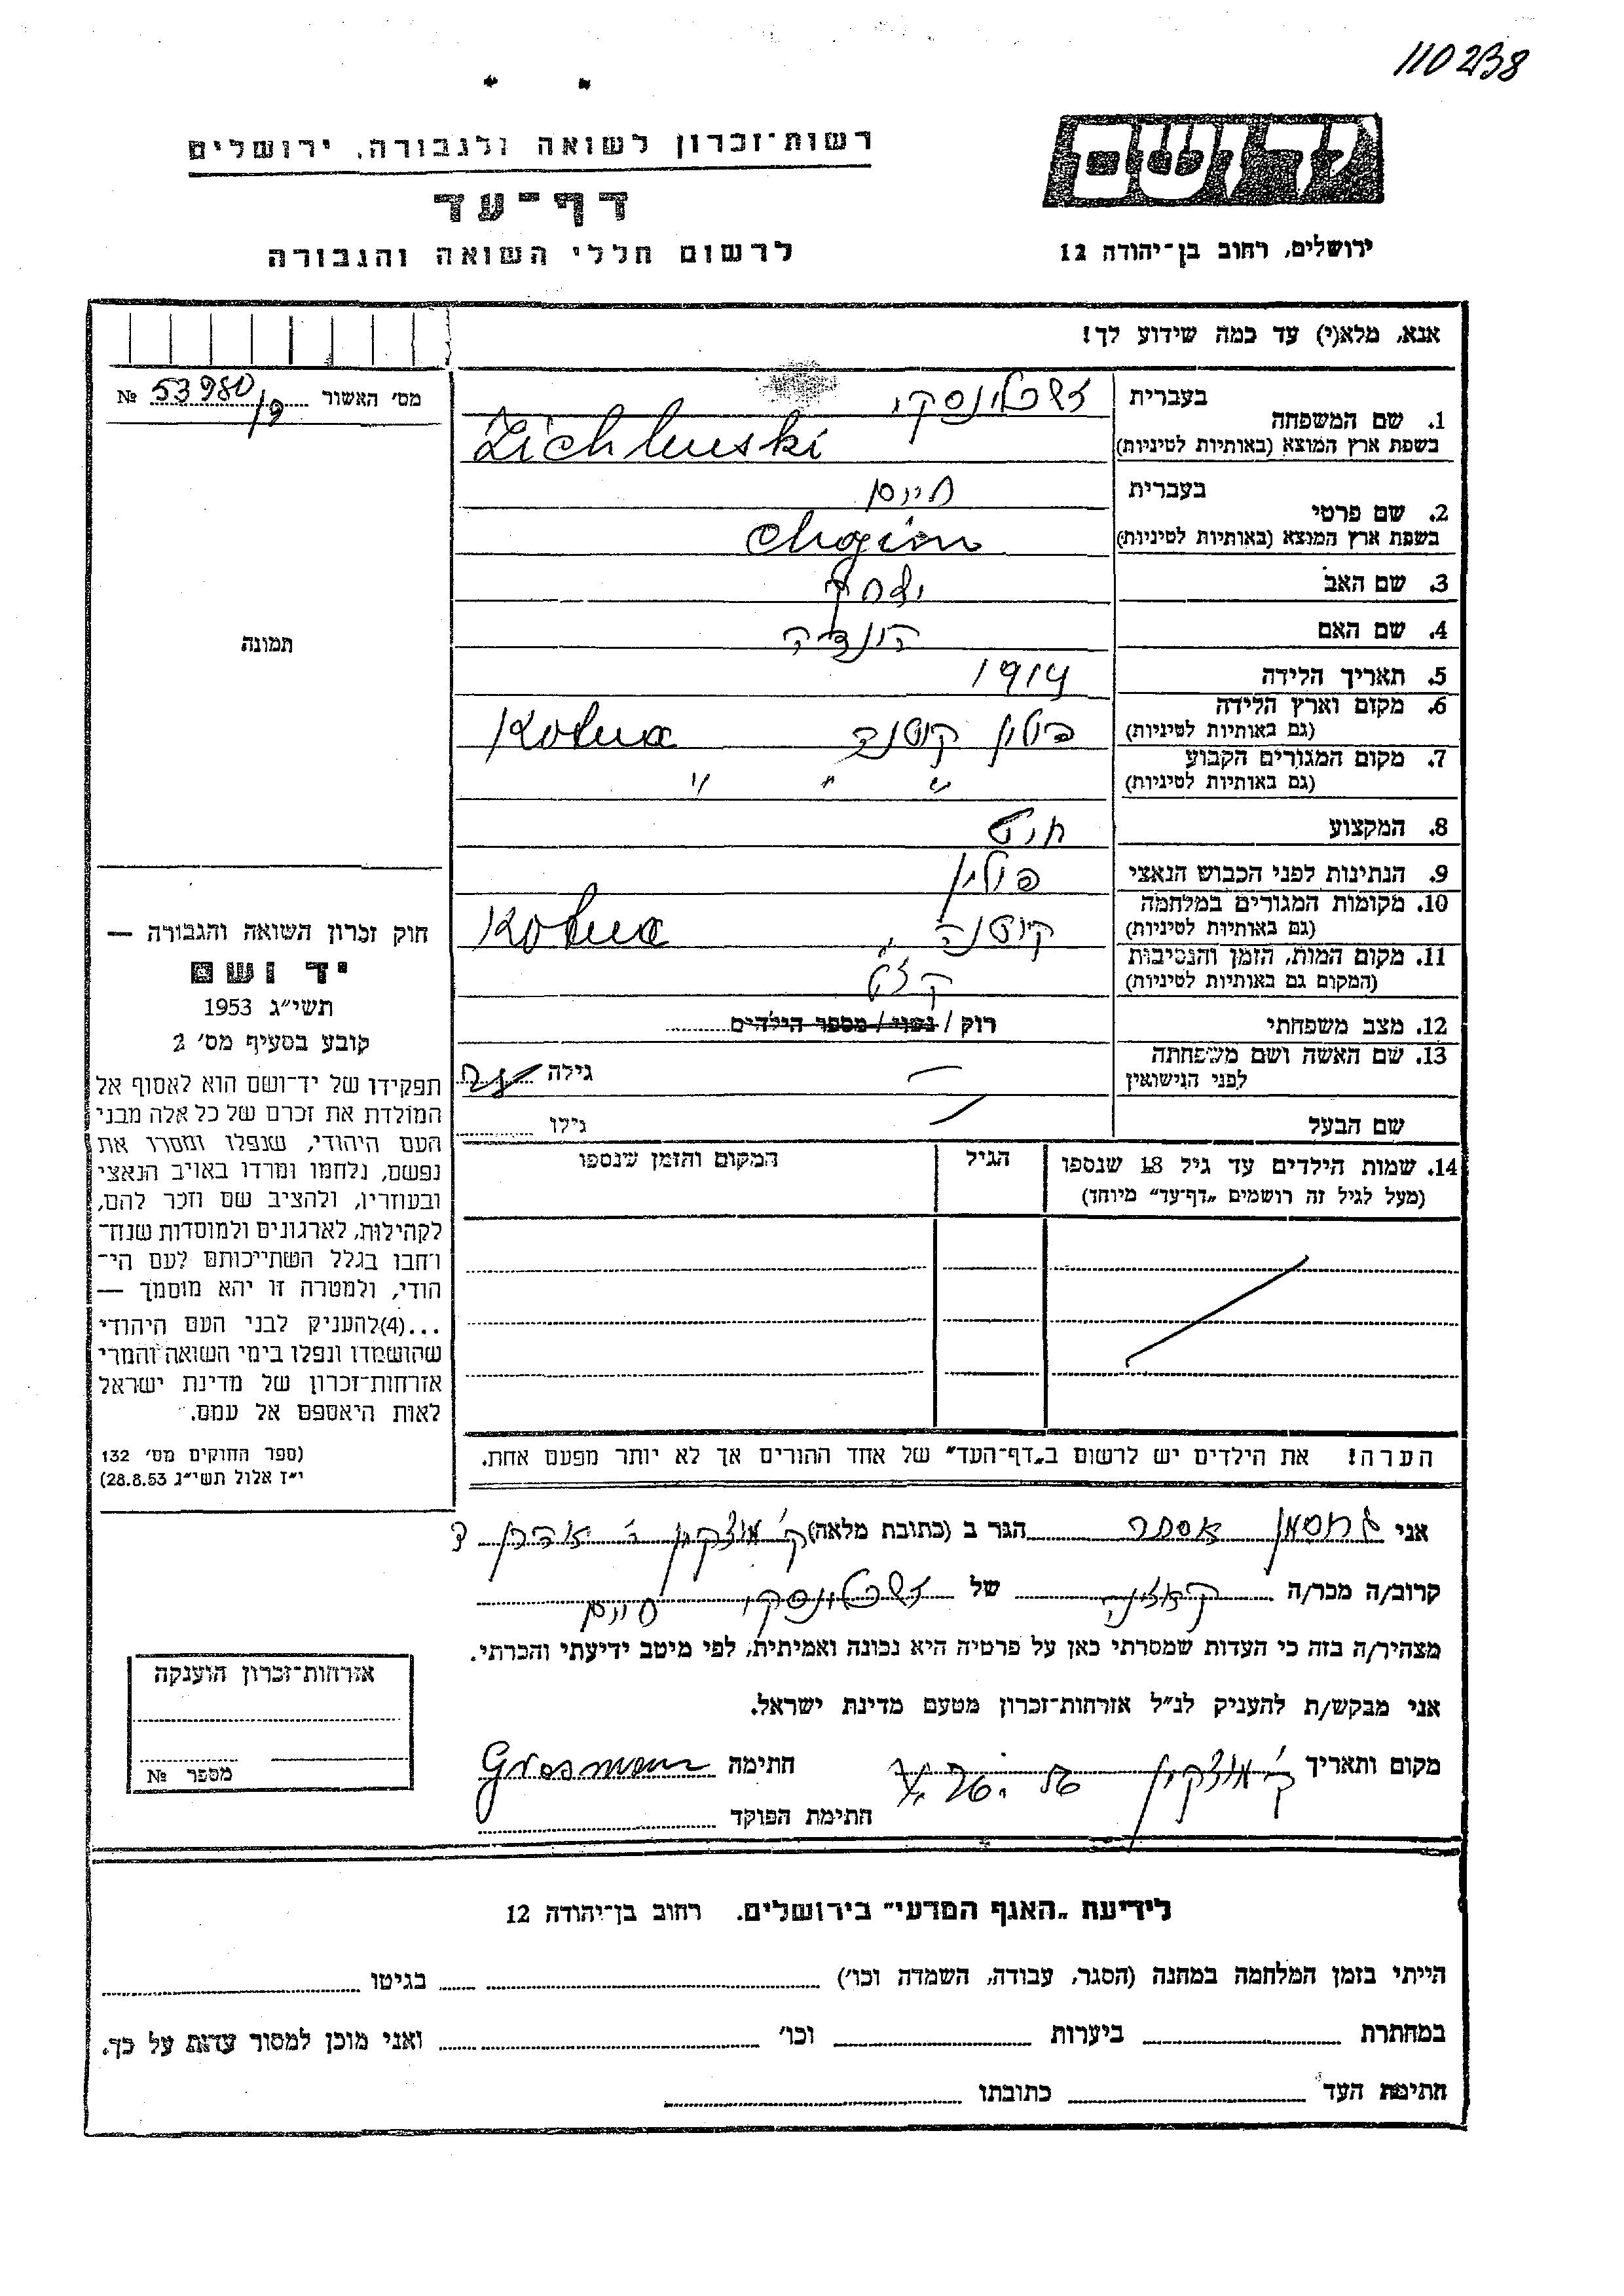 110238
רשות־זכרון לשואה ולגבורה, ירושלים
דף־עד
לרשום חללי השואה והגבורה
ידושם
ירושלים, רחוב בן־יהודה 12
אנא, מלא(י) עד כמה שידוע לך!
מס׳ האשור 53980/9 №
תמונה
חוק זכרון השואה והגבורה —
יד ושם
תשי״ג 1953
קובע בסעיף מס׳ 2
תפקידו של יד־ושם הוא לאסוף אל
המולדת את זכרם של כל אלה מבני
העם היהודי, שנפלו ומסרו את
נפשם, נלחמו ומרדו באויב הנאצי
ובעוזריו, ולהציב שם וזכר להם,
לקהילות, לארגונים ולמוסדות שנח־
רחבו בגלל השתייכותם לעם הי־
הודי, ולמטרה זו יהא מוסמך —
...(4)להעניק לבני העם היהודי
שהושמדו ונפלו בימי השואה והמרי
אזרחות־זכרון של מדינת ישראל
לאות היאספם אל עמם.
(ספר החוקים מס׳ 132
י״ז אלול תשי״ג 28.8.53)
בעברית
1. שם המשפחה
בשפת ארץ המוצא (באותיות לטיניות) Zichlinski
בעברית חיים
2. שם פרטי
בשפת ארץ המוצא (באותיות לטיניות) Chaim
3. שם האב יצחק
4. שם האם
5. תאריך הלידה 1914
6. מקום וארץ הלידה פולין קוטנה Kotna
(גם באותיות לטיניות)
7. מקום המגורים הקבוע " " "
(גם באותיות לטיניות)
8. המקצוע חיט
9. הנתינות לפני הכבוש הנאצי פולין
10. מקומות המגורים במלחמה קוטנה, Kotna
(גם באותיות לטיניות)
11. מקום המות, הזמן והנסיבות
(המקום גם באותיות לטיניות)
12. מצב משפחתי רוק / נשוי / מספר הילדים
13. שם האשה ושם משפחתה
לפני הנישואין — גילה
שם הבעל גילו
14. שמות הילדים עד גיל 18 שנספו הגיל המקום והזמן שנספו
(מעל לגיל זה רושמים „דף־עד״ מיוחד)
הערה! את הילדים יש לרשום ב„דף־העד״ של אחד ההורים אך לא יותר מפעם אחת.
אני גרוסמן אסתר הגר ב (כתובת מלאה) ק׳ מוצקין
קרוב/ה מכר/ה של חיים
מצהיר/ה בזה כי העדות שמסרתי כאן על פרטיה היא נכונה ואמיתית, לפי מיטב ידיעתי והכרתי.
אני מבקש/ת להעניק לנ״ל אזרחות־זכרון מטעם מדינת ישראל.
מקום ותאריך ק׳ מוצקין חתימה Grosman
חתימת הפוקד
אזרחות־זכרון הוענקה
מספר №
לידיעת „האגף המדעי״ בירושלים. רחוב בן־יהודה 12
הייתי בזמן המלחמה במחנה (הסגר, עבודה, השמדה וכו׳) בגיטו
במחתרת ביערות וכו׳ ואני מוכן למסור עדות על כך.
חתימת העד כתובתו